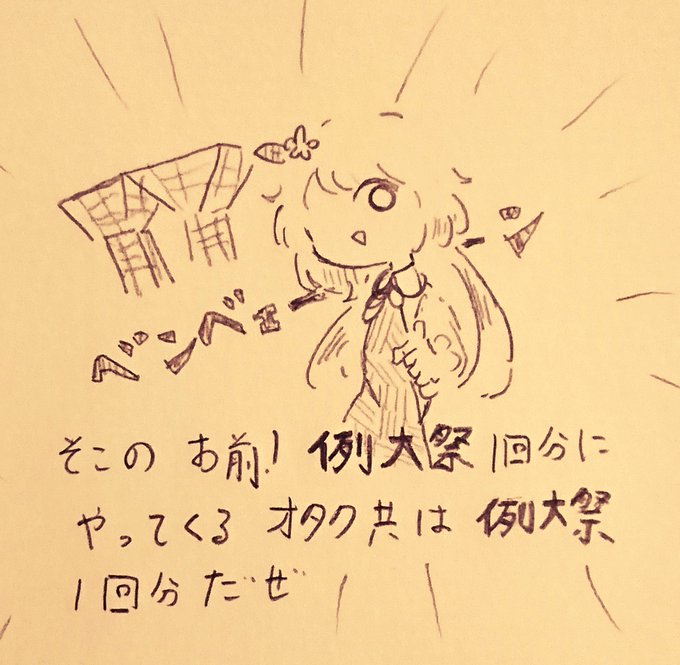 ベンベェーン
そこの お前! 例大祭 1回分に
やってくる オタク共は 例大祭
1回分だぜ